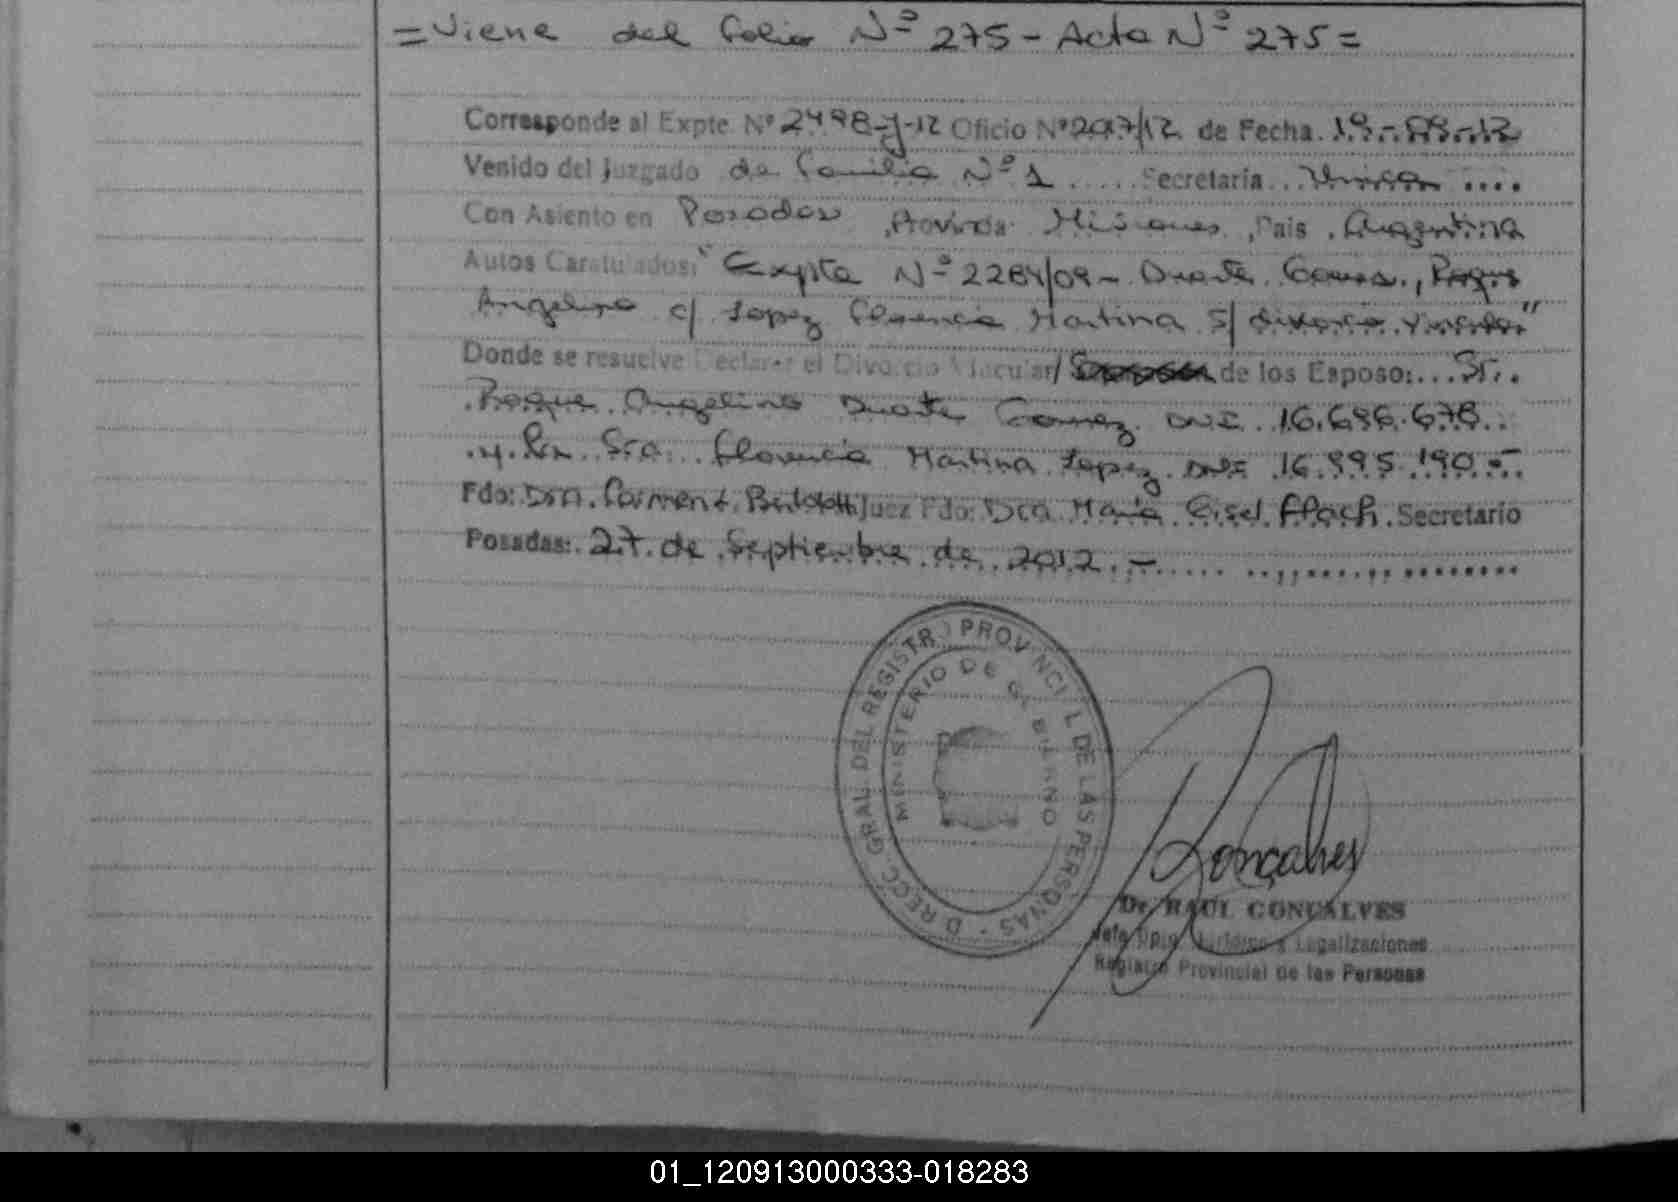 = Viene del Folio Nº 275 - Acta Nº 275 =
Corresponde al Expte. Nº 2498-J-12 Oficio Nº 2017/12 de Fecha. 19-09-12
Venido del Juzgado de Familia Nº 1 ..... Secretaría .. Unica ....
Con Asiento en Posadas, Provincia Misiones, País, Argentina
Autos Caratulados: "Expte Nº 2284/09 - Duarte Gomez, Roque
Angelino c/ Lopez Florencia Martina S/ divorcio vincular"
Donde se resuelve Declarar el Divorcio Vincular/ de los Esposo: ... Sr..
Roque Angelino Duarte Gomez DNI. 16.696.678..
y la Sra. Florencia Martina Lopez DNI 16.995.190.-
Fdo: Dra. Carmen Juez Fdo: Dra María Gisel Flach. Secretario
Posadas: 27 de Septiembre de 2012.-
DIRECC. GRAL. DEL REGISTRO PROVINCIAL DE LAS PERSONAS
MINISTERIO DE GOBIERNO
Goncalves
Dr. RAUL GONCALVES
Jefe Dpto. Jurídico y Legalizaciones
Registro Provincial de las Personas
01_120913000333-018283